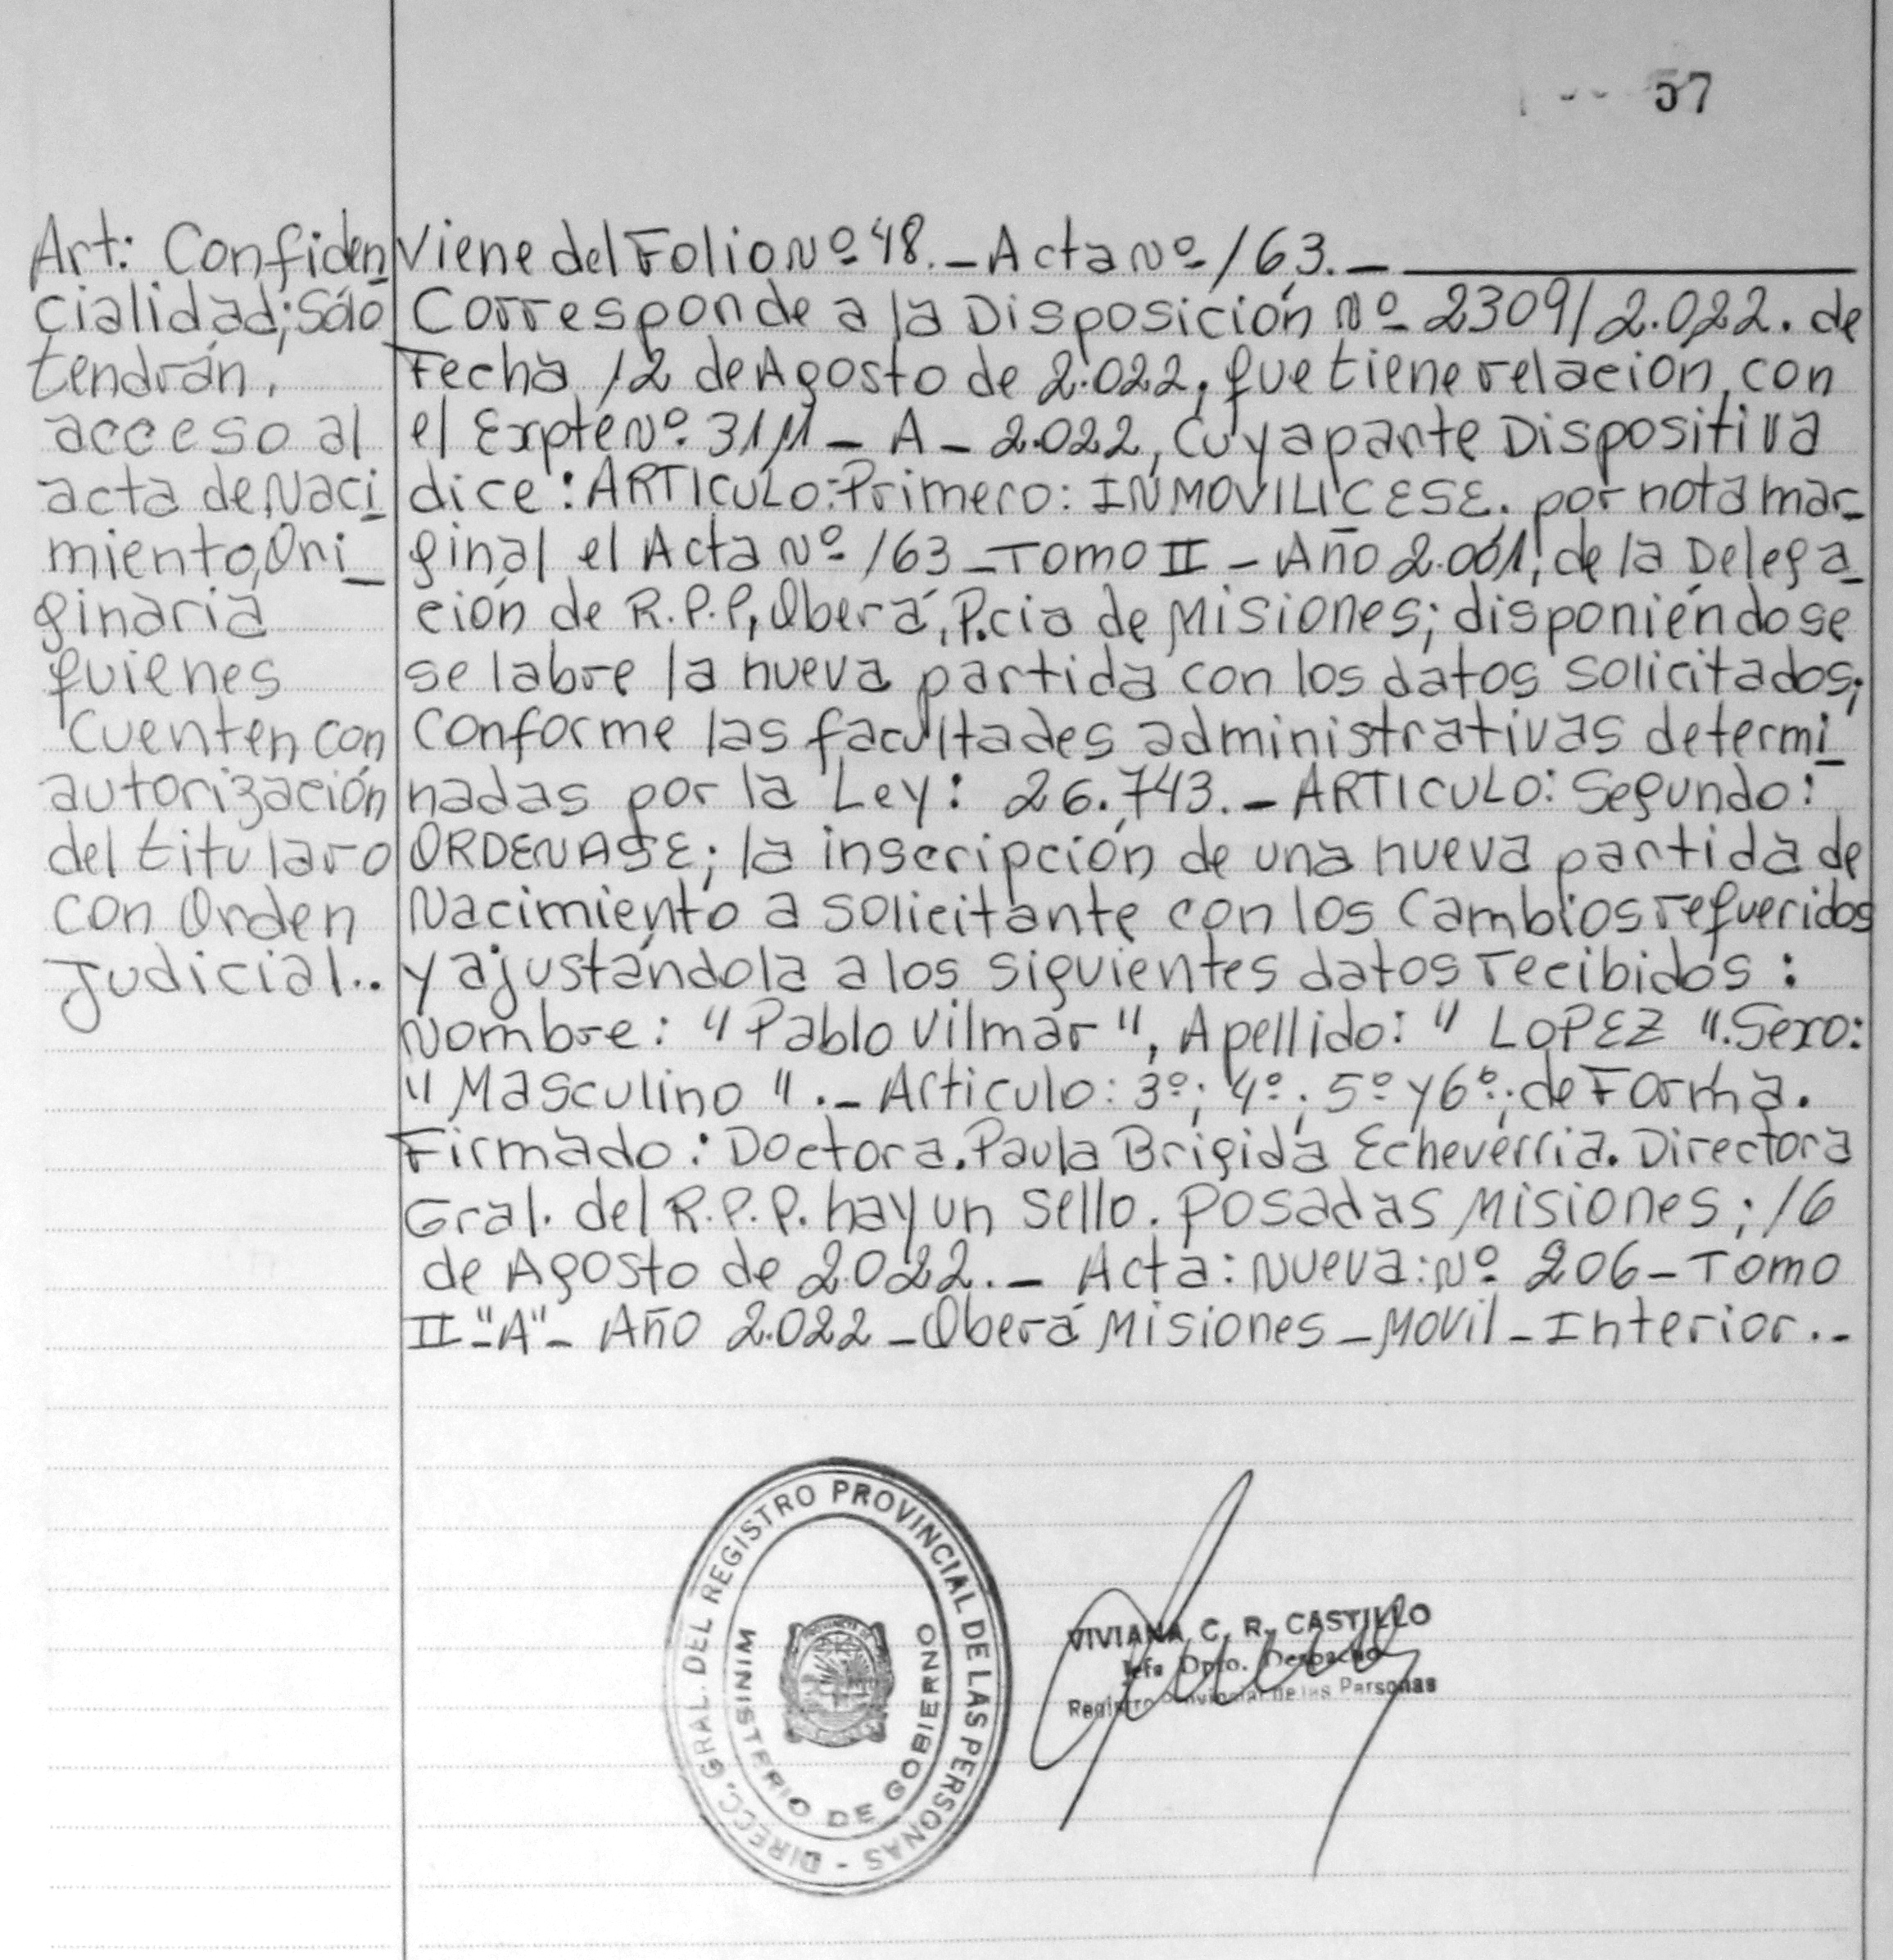 57
Art: Confiden
cialidad; Sólo
tendrán.
acceso al
acta de Naci_
miento, Ori_
ginaria
quienes
Cuenten con
autorización
del titular o
con Orden
Judicial..
Viene del Folio Nº 48. - Acta Nº 163. -
Corresponde a la Disposición Nº 2309/2.022. de
Fecha 12 de Agosto de 2.022, que tiene relacion, con
el Expte Nº 3111 - A - 2.022, Cuya parte Dispositiva
dice: ARTICULO: Primero: INMOVILICESE. por nota mar_
ginal el Acta Nº 163 - Tomo II - Año 2.001, de la Delega_
ción de R.P.P, Oberá, P.cia de Misiones; disponiéndose
se labre la nueva partida con los datos solicitados;
Conforme las facultades administrativas determi_
nadas por la Ley: 26.743. - ARTICULO: Segundo:
ORDENASE; la inscripción de una nueva partida de
Nacimiento a solicitante con los Cambios requeridos
y ajustándola a los siguientes datos recibidos:
Nombre: "Pablo Vilmar", Apellido: "LOPEZ". Sexo:
"Masculino". - Articulo: 3º; 4º; 5º y 6º; de Forma.
Firmado: Doctora. Paula Brigida Echeverria. Directora
Gral. del R.P.P. hay un Sello. Posadas Misiones; 16
de Agosto de 2.022. - Acta: Nueva: Nº 206 - Tomo
II "A" - Año 2.022 - Oberá Misiones - Movil - Interior. -
DIRECC. GRAL. DEL REGISTRO PROVINCIAL DE LAS PERSONAS -
MINISTERIO DE GOBIERNO
VIVIANA C. R. CASTILLO
Jefa Dpto. Despacho
Registro Provincial de las Personas